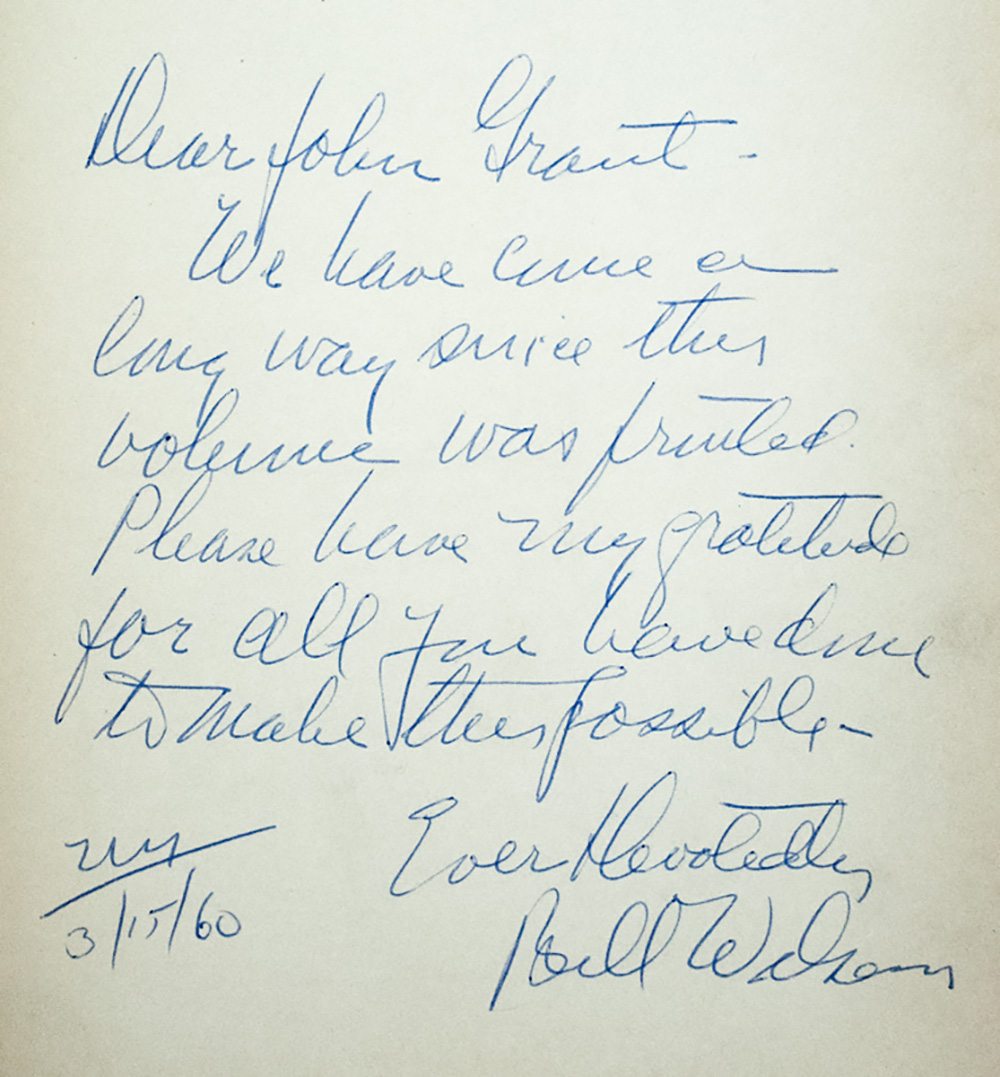 Dear John Grant -
We have come a
long way since this
volume was printed.
Please have my gratitude
for all you have done
to make this possible -
Ever Devotedly
NY
Bill Wilson
3/15/60